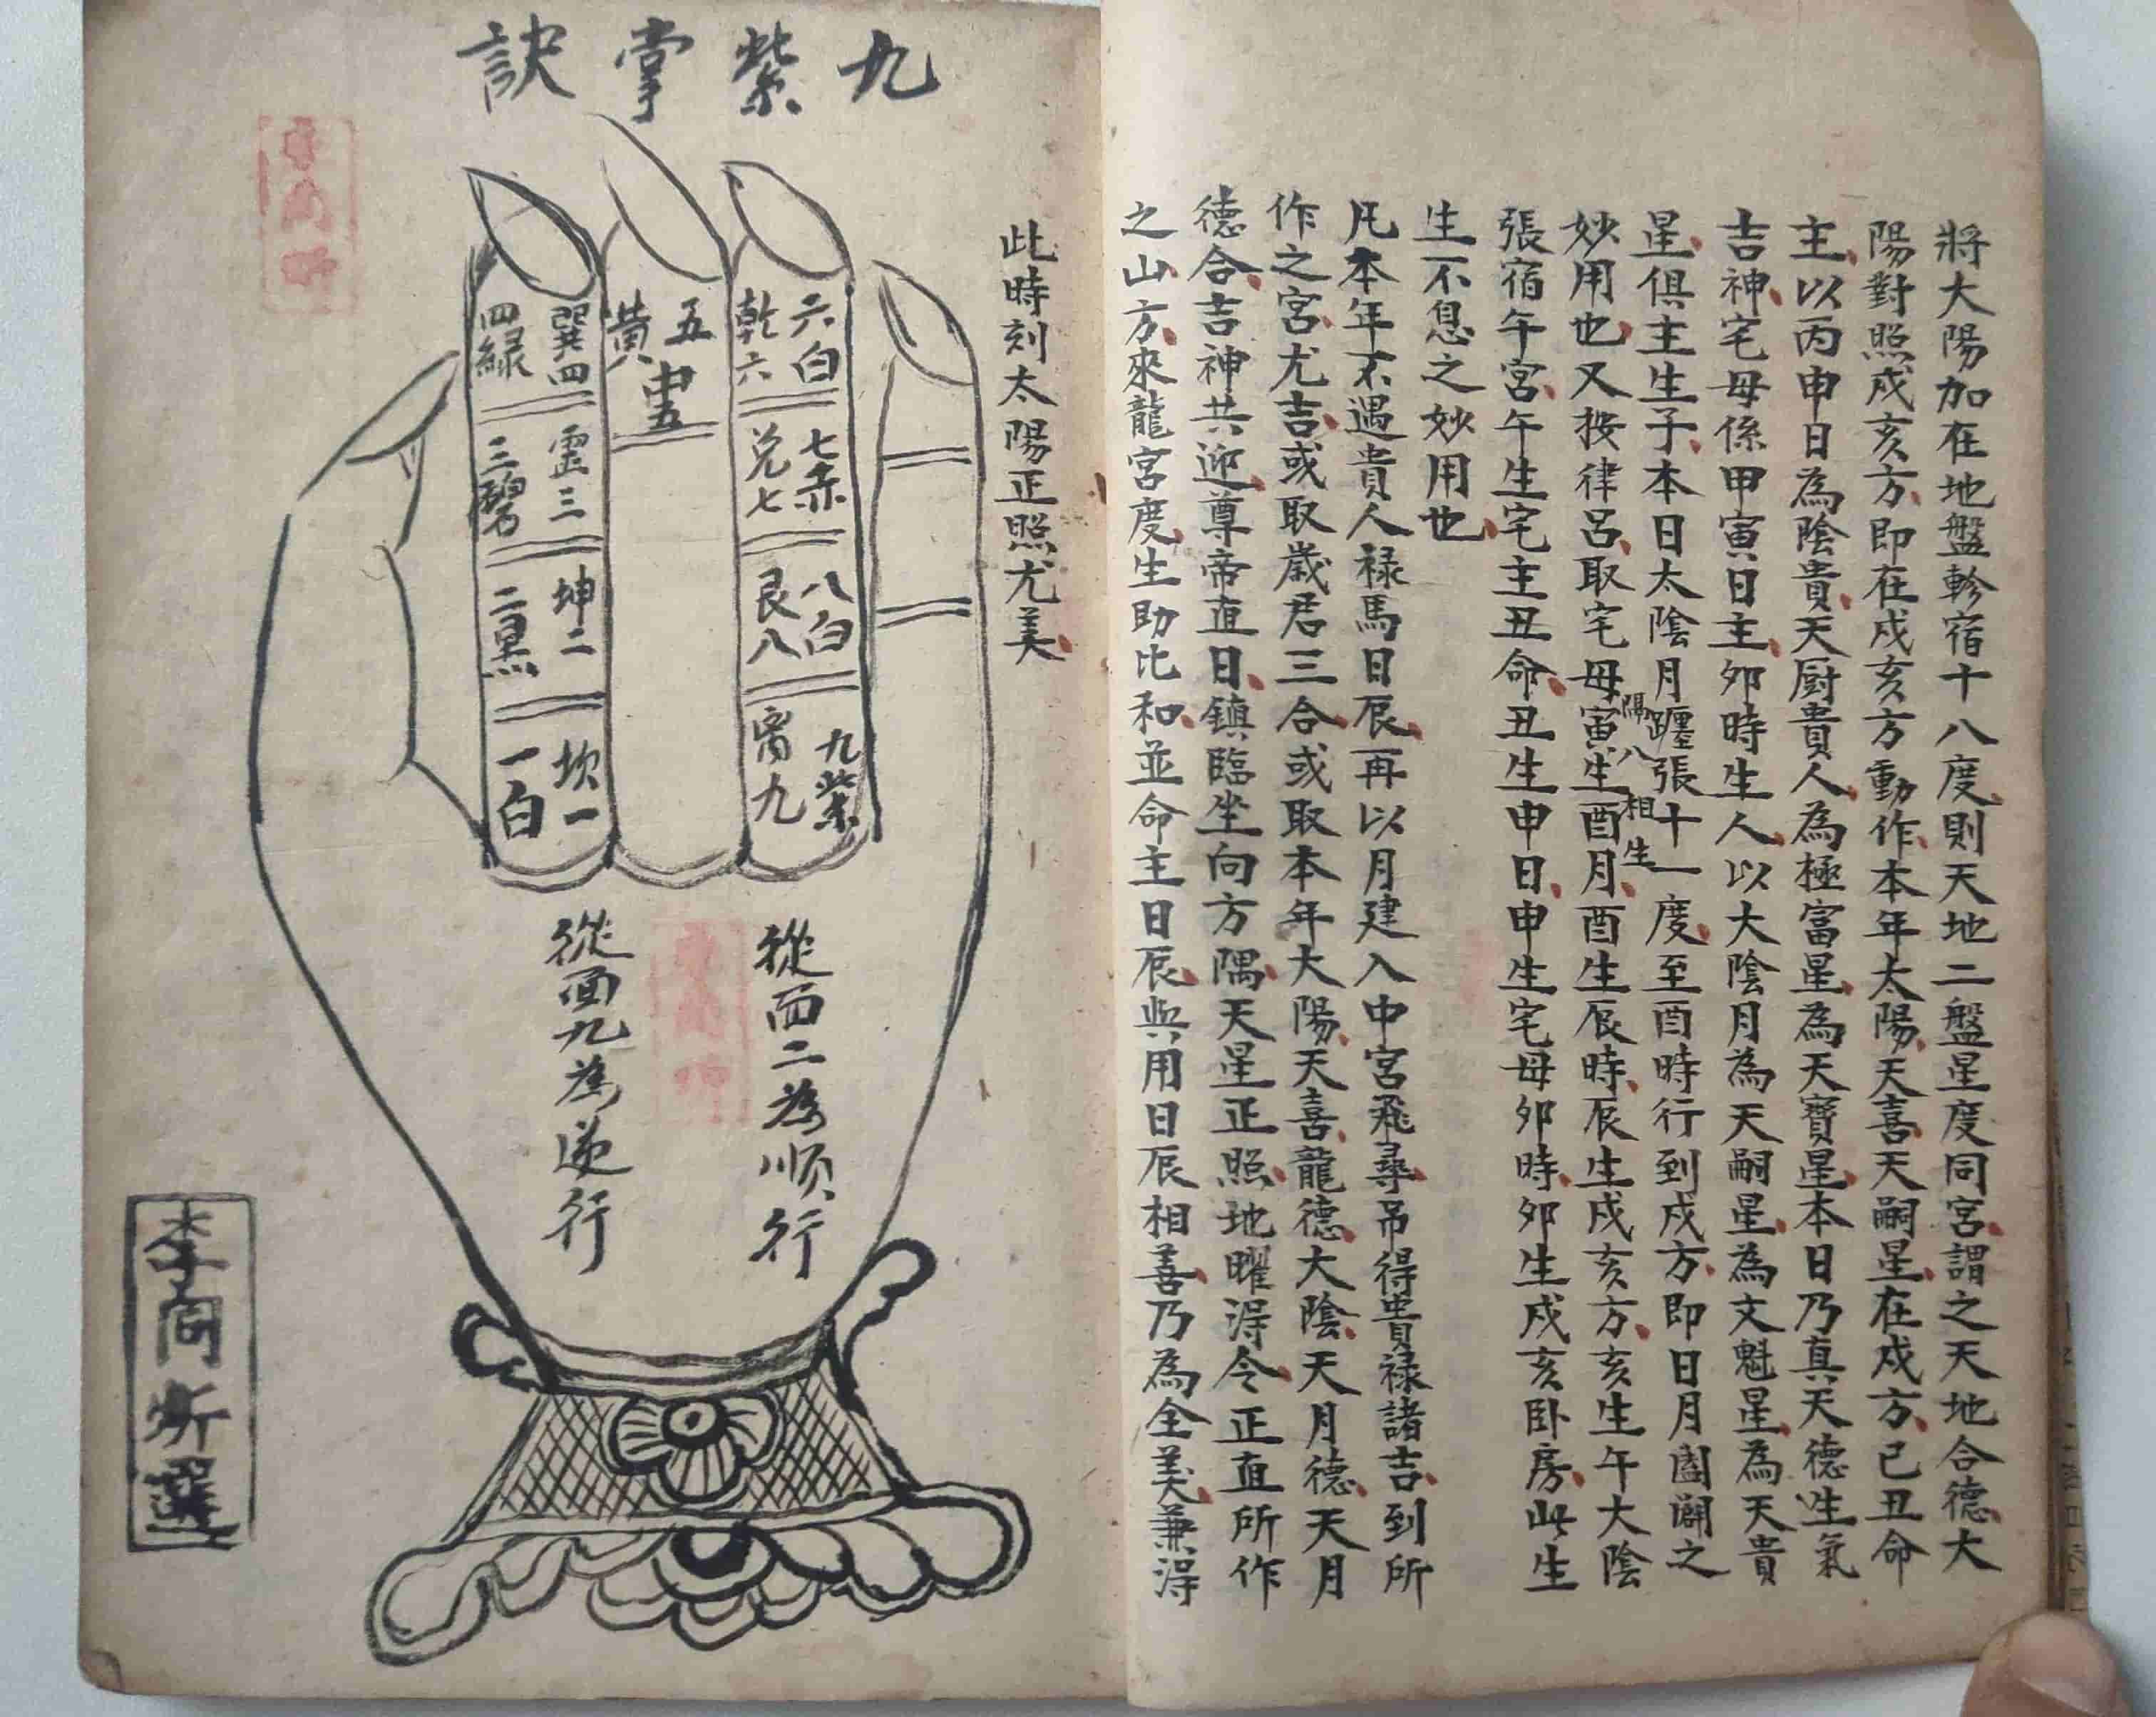 將大陽加在地盤軫宿十八度則天地二盤星度同宮謂之天地合德大
陽對照戍亥方即在戍亥方動作本年太陽天喜天嗣星在戍方己丑命
主以丙申日為陰貴天厨貴人為極富星為天寶星本日乃真天德生氣
吉神宅母係甲寅日主夘時生人以大陰月為天嗣星為文魁星為天貴
星俱主生子本日太陰月躔張十一度至酉時行到戍方即日月闔闢之
妙用也又按律呂取宅母寅生酉月酉生辰時辰生戍亥方亥生午大陰
隔八相生
張宿午宮午生宅主丑命丑生申日申生宅母夘時夘生戍亥卧房此生
生不息之妙用也
凡本年不遇貴人祿馬日辰再以月建入中宮飛尋吊得貴祿諸吉到所
作之宮尤吉或取歲君三合或取本年大陽天喜龍德大陰天月德天月
德合吉神共迎尊帝直日鎮臨坐向方隅天星正照地曜得令正直所作
之山方來龍宮度生助比和並命主日辰與用日辰相善乃為全美兼得
此時刻太陽正照尤美
九紫掌訣
六白
乾六
七赤
兌七
八白
艮八
九紫
离九
五黃
中五
巽四
四綠
震三
三碧
坤二
二黑
坎一
一白
從面二為順行
從面九為逆行
李同
選